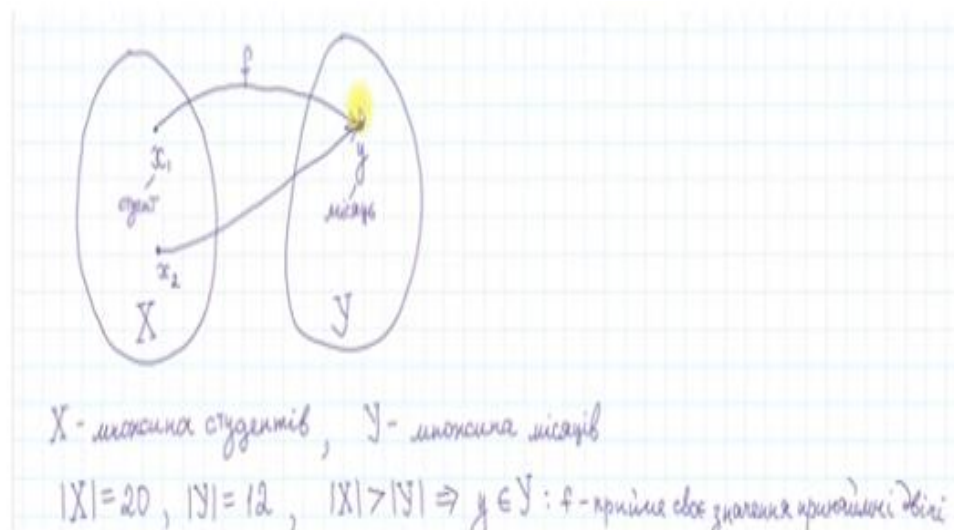 f
x₁
y
студент
місяць
x₂
X
Y
X - множина студентів, Y - множина місяців
|X|=20, |Y|=12, |X|>|Y| ⇒ y ∈ Y : f - прийме своє значення принаймні двічі